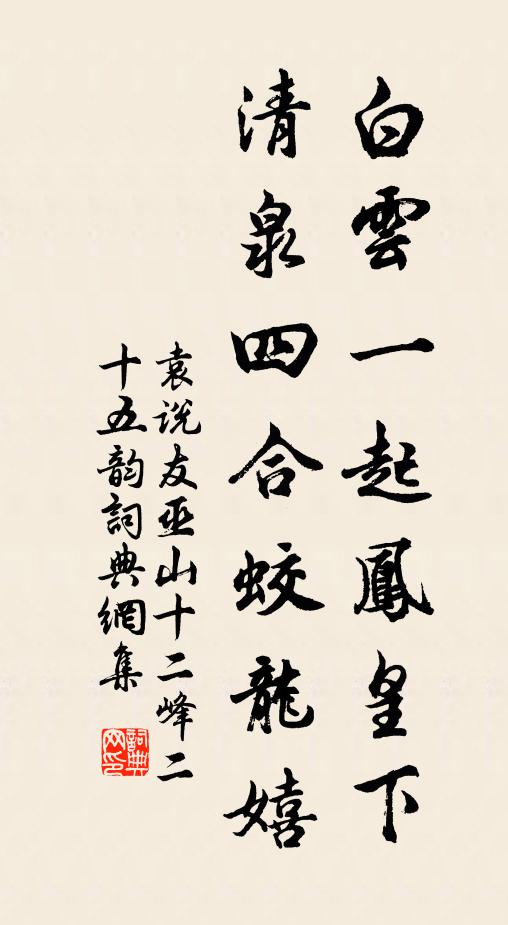 白雲一起鳳皇下
清泉四合蛟龍嬉
袁説友巫山十二峰二
十五韵詞典網集
詞典
网印